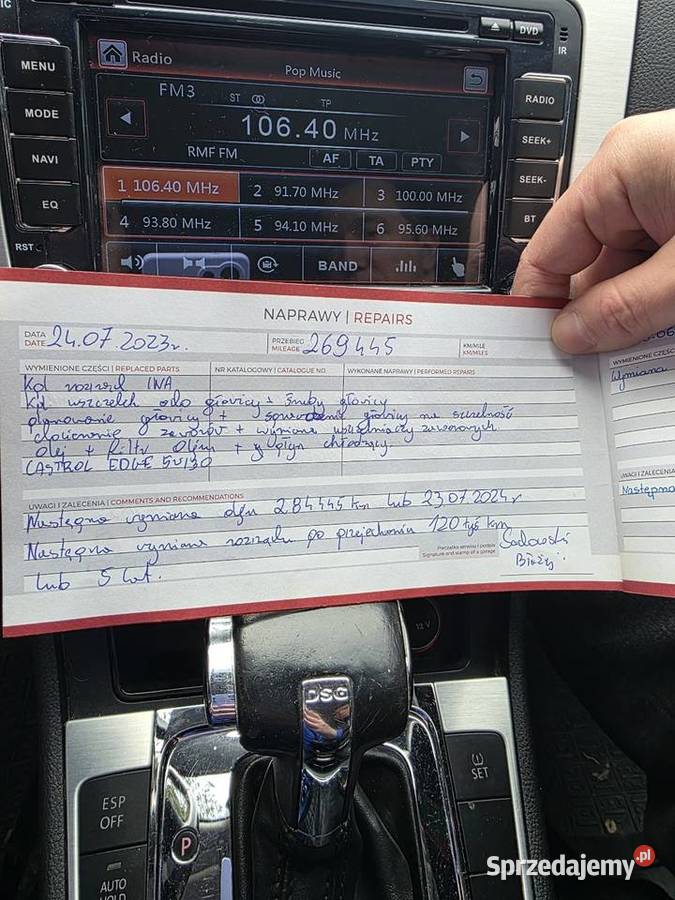 IC
DVD
IR
MENU
MODE
NAVI
EQ
RST
Radio
Pop Music
FM3
ST
TP
106.40 MHz
RMF FM
AF
TA
PTY
1 106.40 MHz
2 91.70 MHz
3 100.00 MHz
4 93.80 MHz
5 94.10 MHz
6 95.60 MHz
BAND
RADIO
SEEK+
SEEK-
BT
NAPRAWY | REPAIRS
DATA
DATE 24.07.2023r.
PRZEBIEG
MILEAGE 269445
KM/MILE
KM/MILES
WYMIENIONE CZĘŚCI | REPLACED PARTS
NR KATALOGOWY | CATALOGUE NO.
WYKONANE NAPRAWY | PERFORMED REPAIRS
Kpl rozrząd INA
Kpl uszczelek do głowicy + śruby głowicy
planowanie głowicy + sprawdzenie głowicy na szczelność
docieranie zaworów + wymiana uszczelniaczy zaworowych
olej + filtr oleju + płyn chłodzący
CASTROL EDGE 5W/30
UWAGI I ZALECENIA | COMMENTS AND RECOMMENDATIONS
Następna wymiana oleju 284445 km lub 23.07.2024r
Następna wymiana rozrządu po przejechaniu 120 tyś km
lub 5 lat.
Pieczątka serwisu i podpis
Signature and stamp of a garage
Sadowski
Błażej
WYMIENIONE CZĘŚCI
Wymiana
UWAGI I ZALECENIA
Następna
12 V
DSG
ESP
OFF
AUTO
HOLD
P
SET
Sprzedajemy.pl